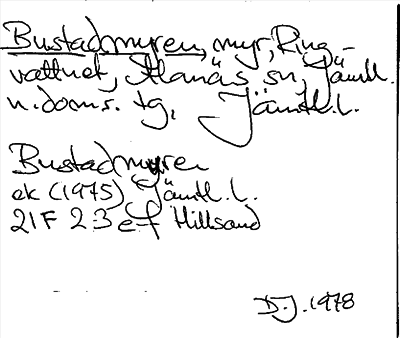 Bustadmyren, myr, Ring-
vattnet, Alanäs sn, Jämtl.
n. doms. tg, Jämtl. l.
Bustadmyren
ek (1975) Jämtl. l.
21F 2-3 e-f Hillsand
D.J. 1978